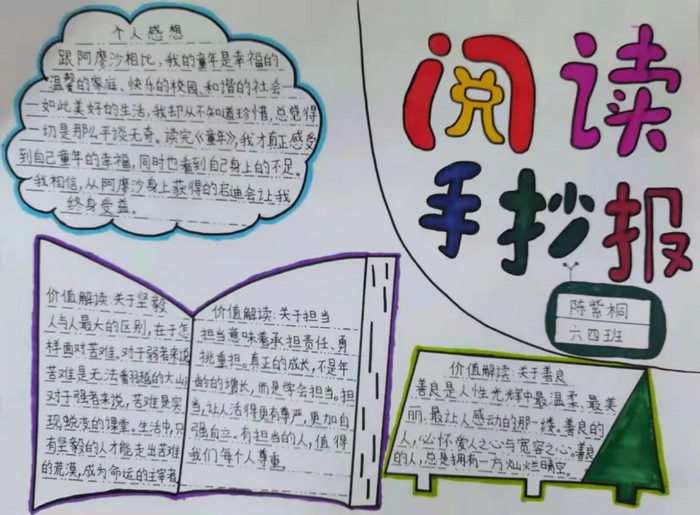 阅读
手抄报
陈紫桐
六四班
个人感想
跟阿摩沙相比，我的童年是幸福的
温馨的家庭、快乐的校园、和谐的社会
如此美好的生活，我却从不知道珍惜，总觉得
一切是那么平淡无奇。读完《童年》，我才真正感受
到自己童年的幸福，同时也看到自己身上的不足。
我相信，从阿摩沙身上获得的启迪会让我
终身受益。
价值解读：关于坚毅
人与人最大的区别，在于怎
样面对苦难。对于弱者来说
苦难是无法翻越的大山
对于强者来说，苦难是实
现蜕变的课堂。生活中，只
有坚毅的人才能走出苦难
的荒漠，成为命运的主宰者
价值解读：关于担当
担当意味着承担责任、勇
挑重担。真正的成长，不是年
龄的增长，而是学会担当。担
当，让人活得更有尊严，更加自
强自立。有担当的人，值得
我们每个人尊重。
价值解读：关于善良
善良是人性光辉中最温柔、最美
丽、最让人感动的那一缕。善良的
人，心怀爱人之心与宽容之心。善良
的人，总是拥有一方灿烂晴空。